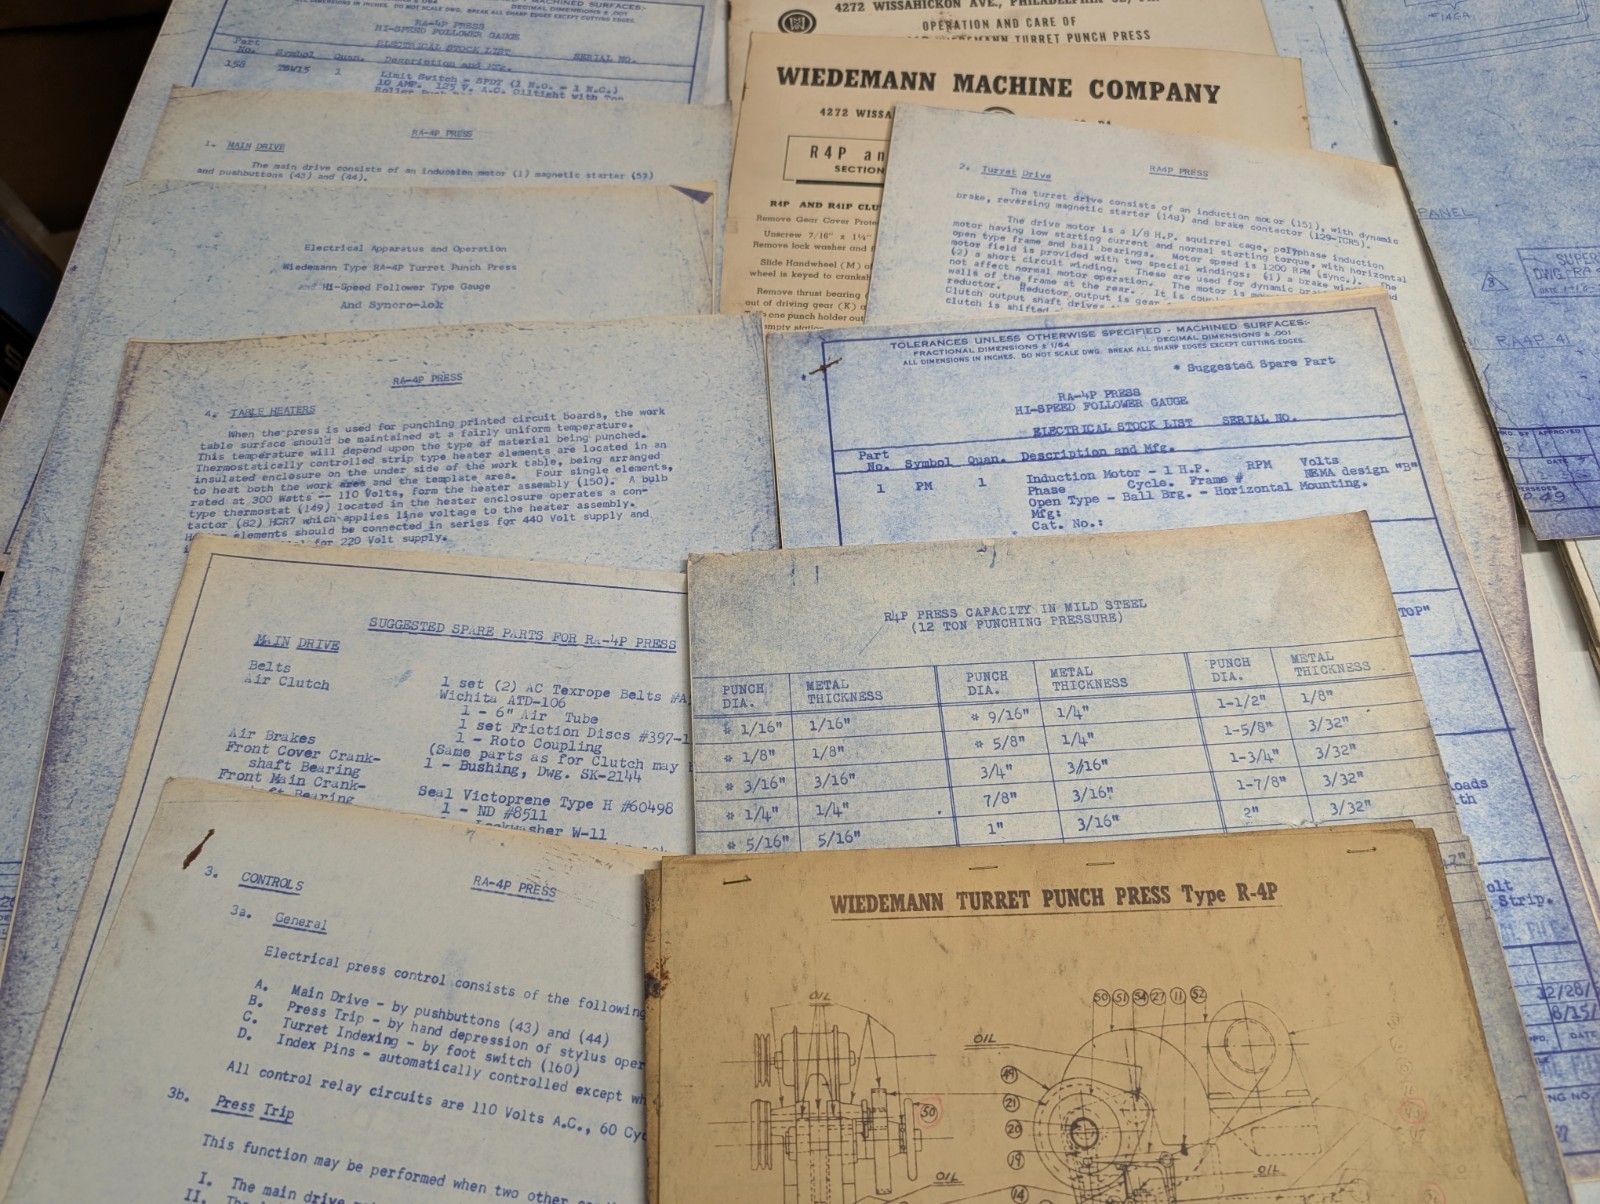 DECIMAL DIMENSIONS & .001
ALL DIMENSIONS IN INCHES. DO NOT SCALE DWG. BREAK ALL SHARP EDGES EXCEPT CUTTING EDGES.
RA-4P PRESS
HI-SPEED FOLLOWER GAUGE
ELECTRICAL STOCK LIST
Part No. Symbol Quan. Description and Mfg. SERIAL NO.
158 1 Limit Switch - SPDT (1 N.O. - 1 N.C.)
10 AMP. 125 V. A.C. Oiltight with Top
RA-4P PRESS
1. MAIN DRIVE
The main drive consists of an induction motor (1) magnetic starter (53)
and pushbuttons (43) and (44).
Electrical Apparatus and Operation
Wiedemann Type RA-4P Turret Punch Press
and Hi-Speed Follower Type Gauge
And Syncro-lok
4272 WISSAHICKON AVE., PHILADELPHIA
OPERATION AND CARE OF
WIEDEMANN TURRET PUNCH PRESS
WIEDEMANN MACHINE COMPANY
4272 WISSA
R4P an
SECTION
R4P AND R41P CLU
Remove Gear Cover Prote
Unscrew 7/16" x 1¼"
Remove lock washer and
Slide Handwheel (M) o
wheel is keyed to cranksh
Remove thrust bearing
out of driving gear (K) o
one punch holder out
empty station
RA4P PRESS
2. Turret Drive
The turret drive consists of an induction motor (151), with dynamic
brake, reversing magnetic starter (148) and brake contactor (129-TCR5).
The drive motor is a 1/8 H.P. squirrel cage, polyphase induction
motor having low starting current and normal starting torque, with horizontal
open type frame and ball bearings. Motor speed is 1200 RPM (sync.). The
motor field is provided with two special windings: (1) a brake
(2) a short circuit winding. These are used for dynamic
not affect normal motor operation. The motor is
walls of the frame at the rear. It is
reductor. Reductor output is gear
Clutch output shaft drives
clutch is shifted
146A
PANEL
SUPER
DWG. RA
RA4P 41
APPROVED
DATE
P 49
RA-4P PRESS
4. TABLE HEATERS
When the press is used for punching printed circuit boards, the work
table surface should be maintained at a fairly uniform temperature.
This temperature will depend upon the type of material being punched.
Thermostatically controlled strip type heater elements are located in an
insulated enclosure on the under side of the work table, being arranged
to heat both the work area and the template area. Four single elements,
rated at 300 Watts -- 110 Volts, form the heater assembly (150). A bulb
type thermostat (149) located in the heater enclosure operates a con-
tactor (82) HCR7 which applies line voltage to the heater assembly.
elements should be connected in series for 440 Volt supply and
for 220 Volt supply.
TOLERANCES UNLESS OTHERWISE SPECIFIED - MACHINED SURFACES:-
FRACTIONAL DIMENSIONS ± 1/64 DECIMAL DIMENSIONS ± .001
ALL DIMENSIONS IN INCHES. DO NOT SCALE DWG. BREAK ALL SHARP EDGES EXCEPT CUTTING EDGES.
* Suggested Spare Part
RA-4P PRESS
HI-SPEED FOLLOWER GAUGE
ELECTRICAL STOCK LIST SERIAL NO.
Part No. Symbol Quan. Description and Mfg.
1 PM 1 Induction Motor - 1 H.P. RPM Volts
Phase Cycle. Frame # NEMA design "B"
Open Type - Ball Brg. - Horizontal Mounting.
Mfg:
Cat. No.:
TOP"
oads
th
olt
Strip.
12/28/
8/15/
DATE
SUGGESTED SPARE PARTS FOR RA-4P PRESS
MAIN DRIVE
Belts 1 set (2) AC Texrope Belts #A
Air Clutch Wichita ATD-106
1 - 6" Air Tube
1 set Friction Discs #397-1
1 - Roto Coupling
Air Brakes (Same parts as for Clutch may
Front Cover Crank- 1 - Bushing, Dwg. SK-2144
shaft Bearing
Front Main Crank- Seal Victoprene Type H #60498
shaft Bearing 1 - ND #8511
Lockwasher W-11
R4P PRESS CAPACITY IN MILD STEEL
(12 TON PUNCHING PRESSURE)
PUNCH DIA. METAL THICKNESS PUNCH DIA. METAL THICKNESS PUNCH DIA. METAL THICKNESS
* 1/16" 1/16" * 9/16" 1/4" 1-1/2" 1/8"
* 1/8" 1/8" * 5/8" 1/4" 1-5/8" 3/32"
* 3/16" 3/16" 3/4" 3/16" 1-3/4" 3/32"
* 1/4" 1/4" 7/8" 3/16" 1-7/8" 3/32"
* 5/16" 5/16" 1" 3/16" 2" 3/32"
RA-4P PRESS
3. CONTROLS
3a. General
Electrical press control consists of the following
A. Main Drive - by pushbuttons (43) and (44)
B. Press Trip - by hand depression of stylus oper
C. Turret Indexing - by foot switch (160)
D. Index Pins - automatically controlled except wh
All control relay circuits are 110 Volts A.C., 60 Cy
3b. Press Trip
This function may be performed when two other
I. The main drive
II. The
WIEDEMANN TURRET PUNCH PRESS Type R-4P
OIL
50 51 54 27 11 52
OIL
49
21
20
19
14
50
OIL
OIL